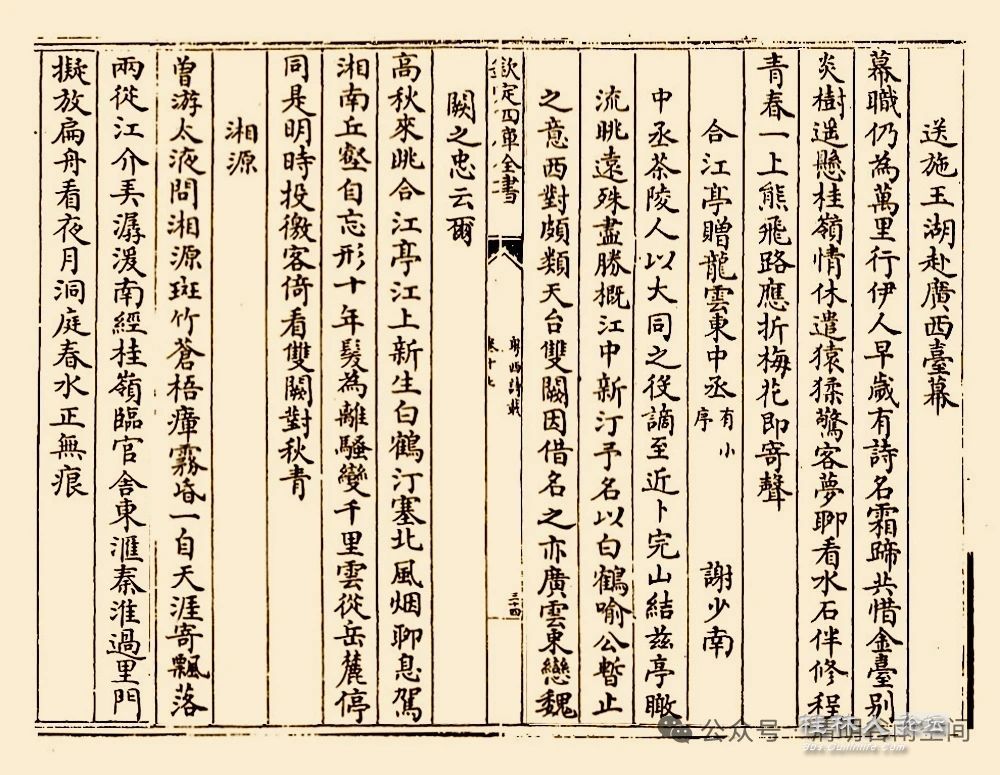 送施玉湖赴廣西臺幕
幕職仍為萬里行伊人早歲有詩名霜蹄共惜金臺別
炎樹遥懸桂嶺情休遣猿猱驚客夢聊看水石伴修程
青春一上熊飛路應折梅花即寄聲
合江亭贈龍雲東中丞有小序 謝少南
中丞茶陵人以大同之役謫至近卜完山結兹亭瞰
流眺遠殊盡勝概江中新汀予名以白鶴喻公暫止
之意西對頗類天台雙闕因借名之亦廣雲東戀魏
欽定四庫全書
粤西詩載
卷十七
三十四
闕之忠云爾
高秋來眺合江亭江上新生白鶴汀塞北風烟聊息駕
湘南丘壑自忘形十年髮為離騷變千里雲從岳麓停
同是明時投徼客倚看雙闕對秋青
湘源
曽游太液問湘源斑竹蒼梧瘴霧昏一自天涯寄飄落
兩從江介弄潺湲南經桂嶺臨官舍東滙秦淮過里門
擬放扁舟看夜月洞庭春水正無痕
公众号
清明谷雨空间
桂林人论坛
bbs.guilinlife.com